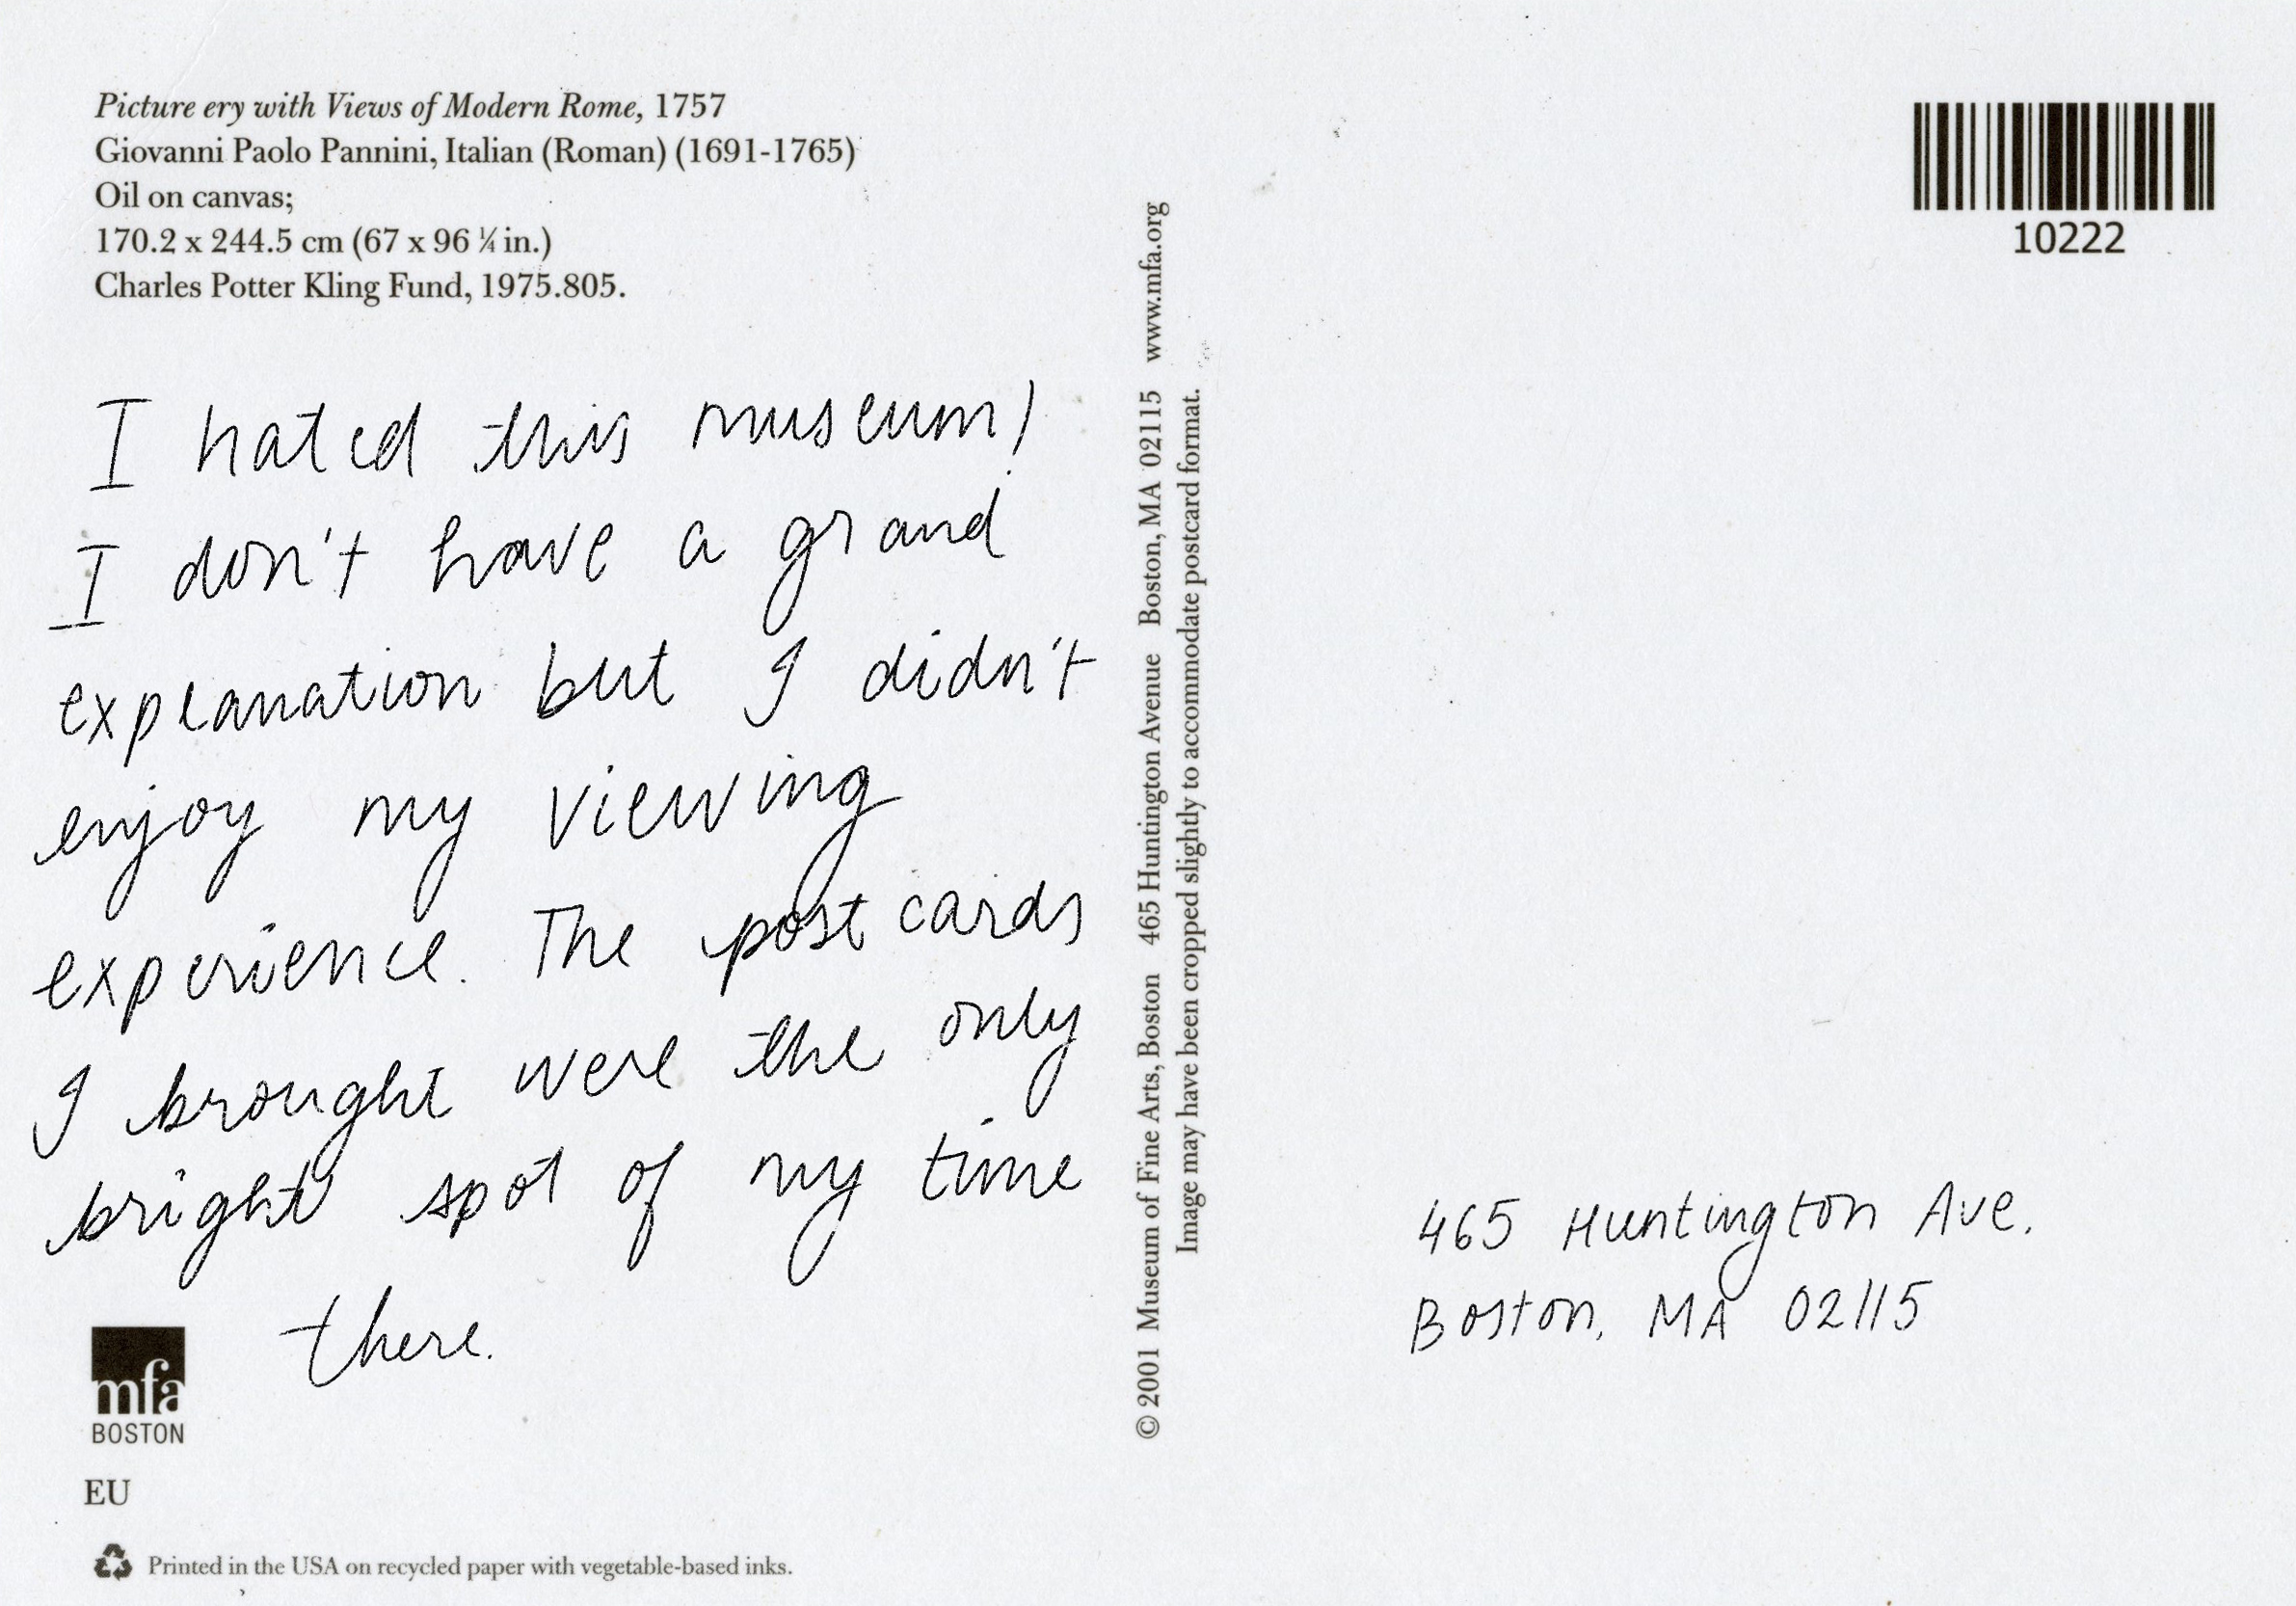 Picture ery with Views of Modern Rome, 1757
Giovanni Paolo Pannini, Italian (Roman) (1691-1765)
Oil on canvas;
170.2 x 244.5 cm (67 x 96 ¼ in.)
Charles Potter Kling Fund, 1975.805.
I hated this museum!
I don't have a grand
explanation but I didn't
enjoy my viewing
experience. The postcards
I brought were the only
bright spot of my time
there.
mfa
BOSTON
EU
Printed in the USA on recycled paper with vegetable-based inks.
© 2001 Museum of Fine Arts, Boston 465 Huntington Avenue Boston, MA 02115 www.mfa.org
Image may have been cropped slightly to accommodate postcard format.
10222
465 Huntington Ave.
Boston, MA 02115